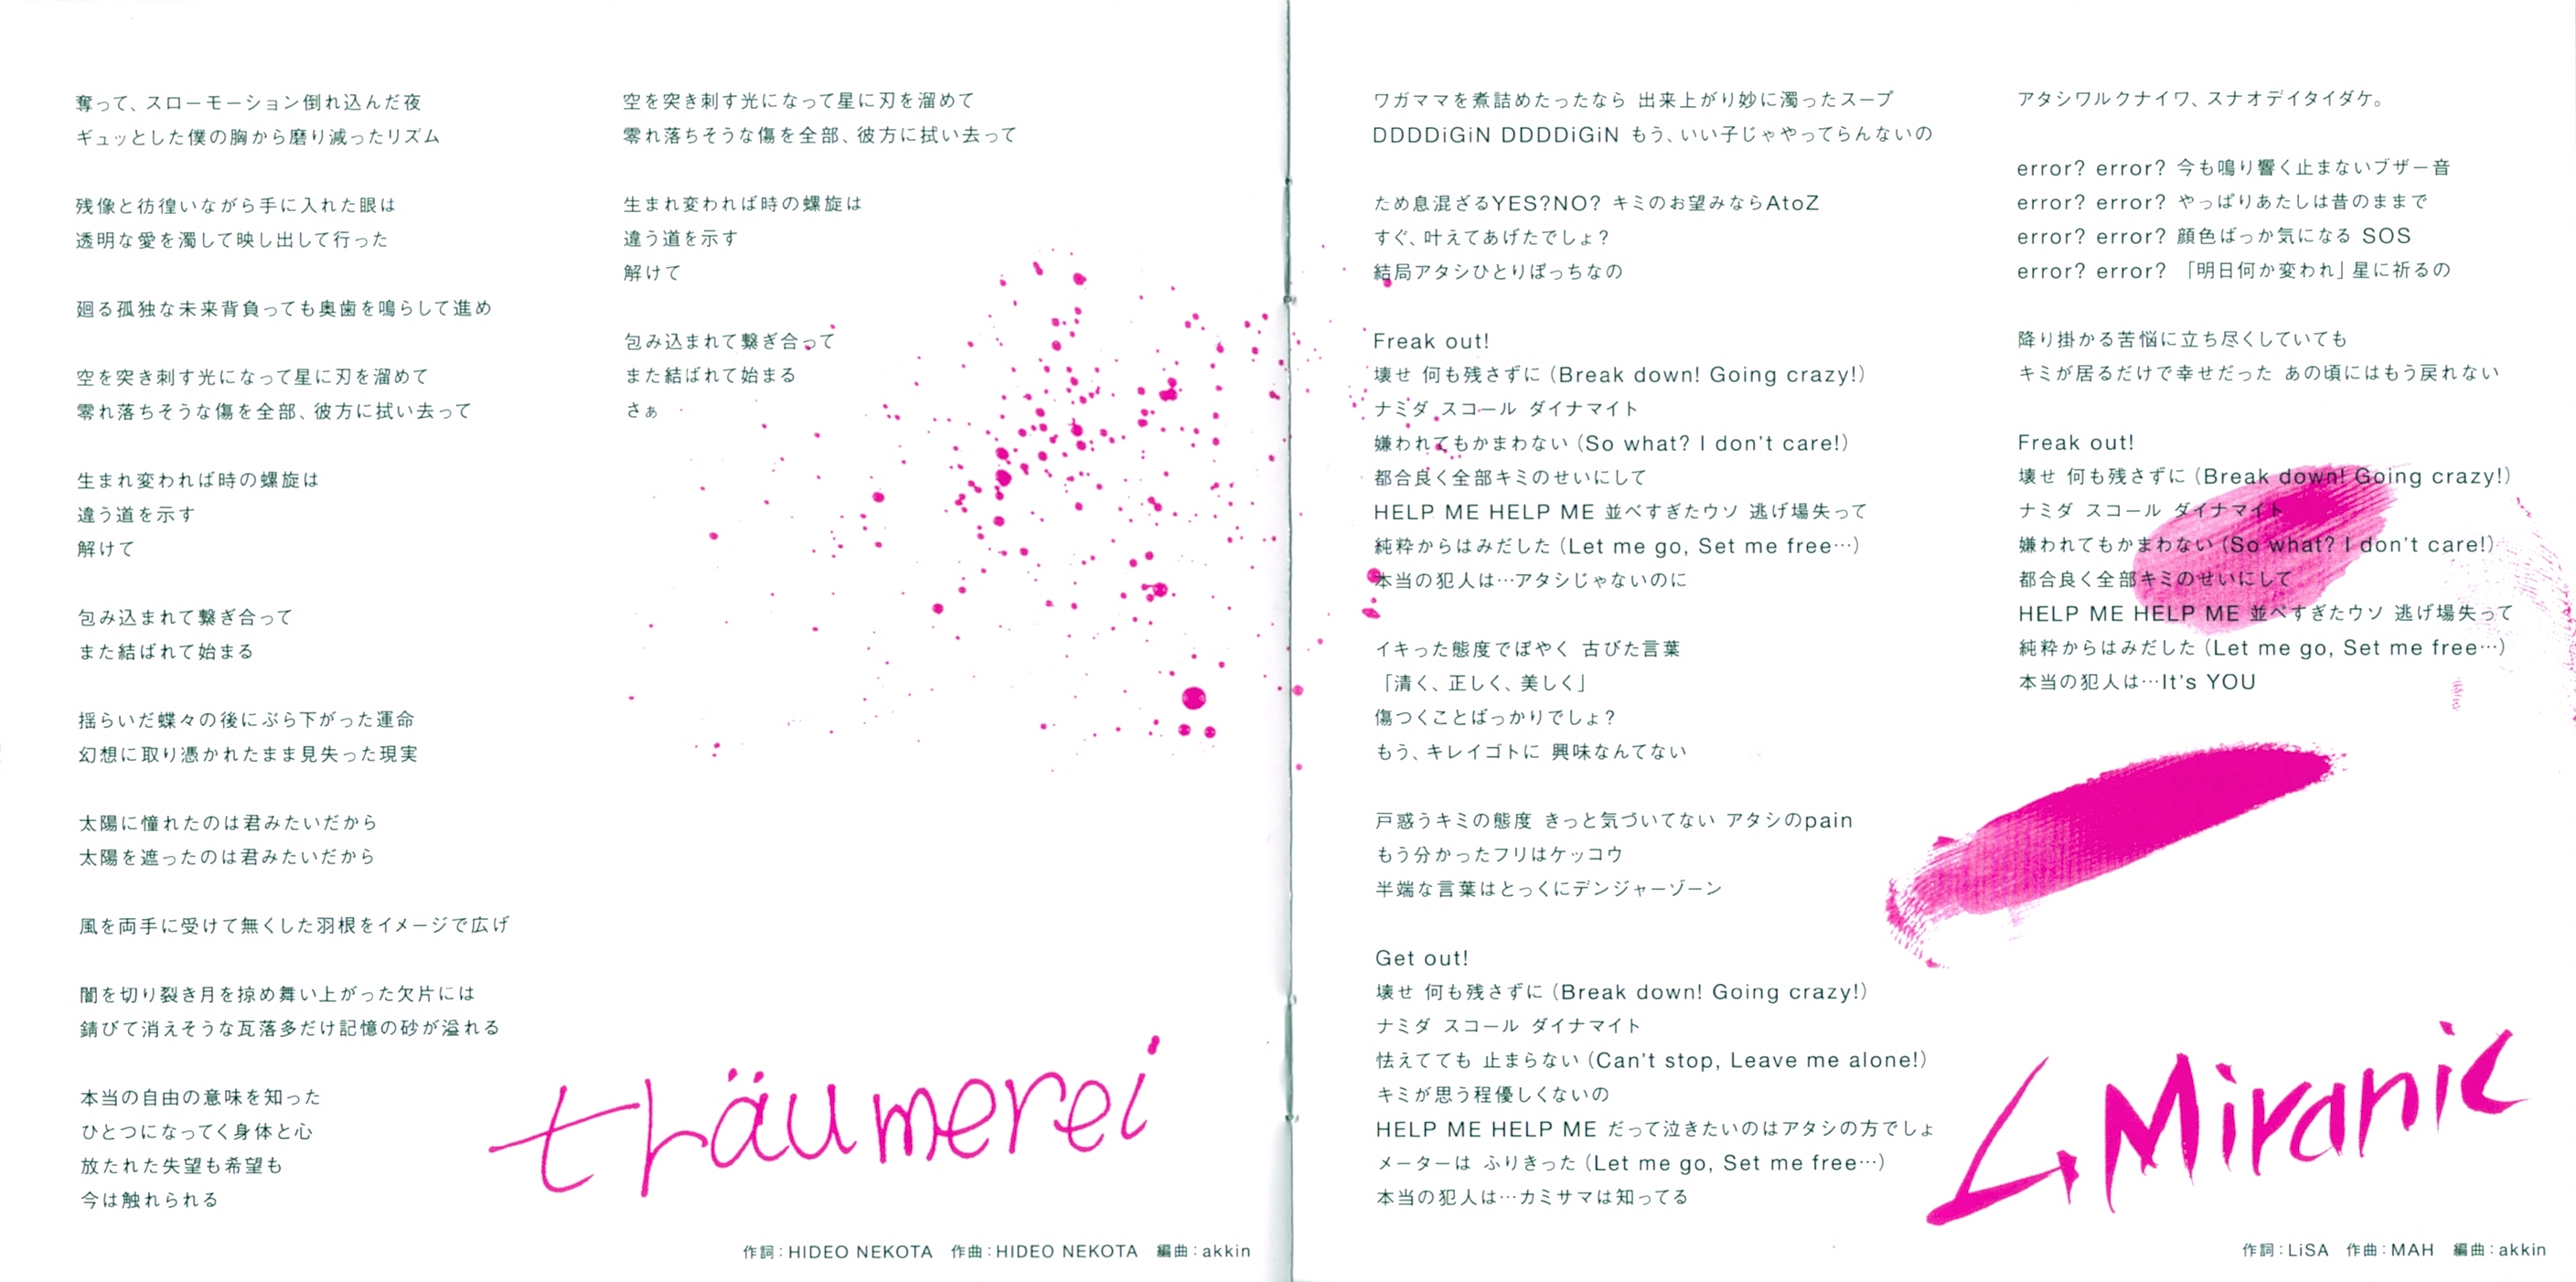 奪って、スローモーション倒れ込んだ夜
ギュッとした僕の胸から磨り減ったリズム
残像と彷徨いながら手に入れた眼は
透明な愛を濁して映し出して行った
廻る孤独な未来背負っても奥歯を鳴らして進め
空を突き刺す光になって星に刃を溜めて
零れ落ちそうな傷を全部、彼方に拭い去って
生まれ変われば時の螺旋は
違う道を示す
解けて
包み込まれて繋ぎ合って
また結ばれて始まる
揺らいだ蝶々の後にぶら下がった運命
幻想に取り憑かれたまま見失った現実
太陽に憧れたのは君みたいだから
太陽を遮ったのは君みたいだから
風を両手に受けて無くした羽根をイメージで広げ
闇を切り裂き月を掠め舞い上がった欠片には
錆びて消えそうな瓦落多だけ記憶の砂が溢れる
本当の自由の意味を知った
ひとつになってく身体と心
放たれた失望も希望も
今は触れられる
空を突き刺す光になって星に刃を溜めて
零れ落ちそうな傷を全部、彼方に拭い去って
生まれ変われば時の螺旋は
違う道を示す
解けて
包み込まれて繋ぎ合って
また結ばれて始まる
さぁ
träumerei
作詞：HIDEO NEKOTA　作曲：HIDEO NEKOTA　編曲：akkin
ワガママを煮詰めたったなら 出来上がり妙に濁ったスープ
DDDDiGiN DDDDiGiN もう、いい子じゃやってらんないの
ため息混ざるYES?NO? キミのお望みならAtoZ
すぐ、叶えてあげたでしょ?
結局アタシひとりぼっちなの
Freak out!
壊せ 何も残さずに（Break down! Going crazy!）
ナミダ スコール ダイナマイト
嫌われてもかまわない（So what? I don't care!）
都合良く全部キミのせいにして
HELP ME HELP ME 並べすぎたウソ 逃げ場失って
純粋からはみだした（Let me go, Set me free…）
本当の犯人は…アタシじゃないのに
イキった態度でぼやく 古びた言葉
「清く、正しく、美しく」
傷つくことばっかりでしょ?
もう、キレイゴトに 興味なんてない
戸惑うキミの態度 きっと気づいてない アタシのpain
もう分かったフリはケッコウ
半端な言葉はとっくにデンジャーゾーン
Get out!
壊せ 何も残さずに（Break down! Going crazy!）
ナミダ スコール ダイナマイト
怯えてても 止まらない（Can't stop, Leave me alone!）
キミが思う程優しくないの
HELP ME HELP ME だって泣きたいのはアタシの方でしょ
メーターは ふりきった（Let me go, Set me free…）
本当の犯人は…カミサマは知ってる
アタシワルクナイワ、スナオデイタイダケ。
error? error? 今も鳴り響く止まないブザー音
error? error? やっぱりあたしは昔のままで
error? error? 顔色ばっか気になる SOS
error? error? 「明日何か変われ」星に祈るの
降り掛かる苦悩に立ち尽くしていても
キミが居るだけで幸せだった あの頃にはもう戻れない
Freak out!
壊せ 何も残さずに（Break down! Going crazy!）
ナミダ スコール ダイナマイト
嫌われてもかまわない（So what? I don't care!）
都合良く全部キミのせいにして
HELP ME HELP ME 並べすぎたウソ 逃げ場失って
純粋からはみだした（Let me go, Set me free…）
本当の犯人は…It's YOU
L. Miranic
作詞：LiSA　作曲：MAH　編曲：akkin